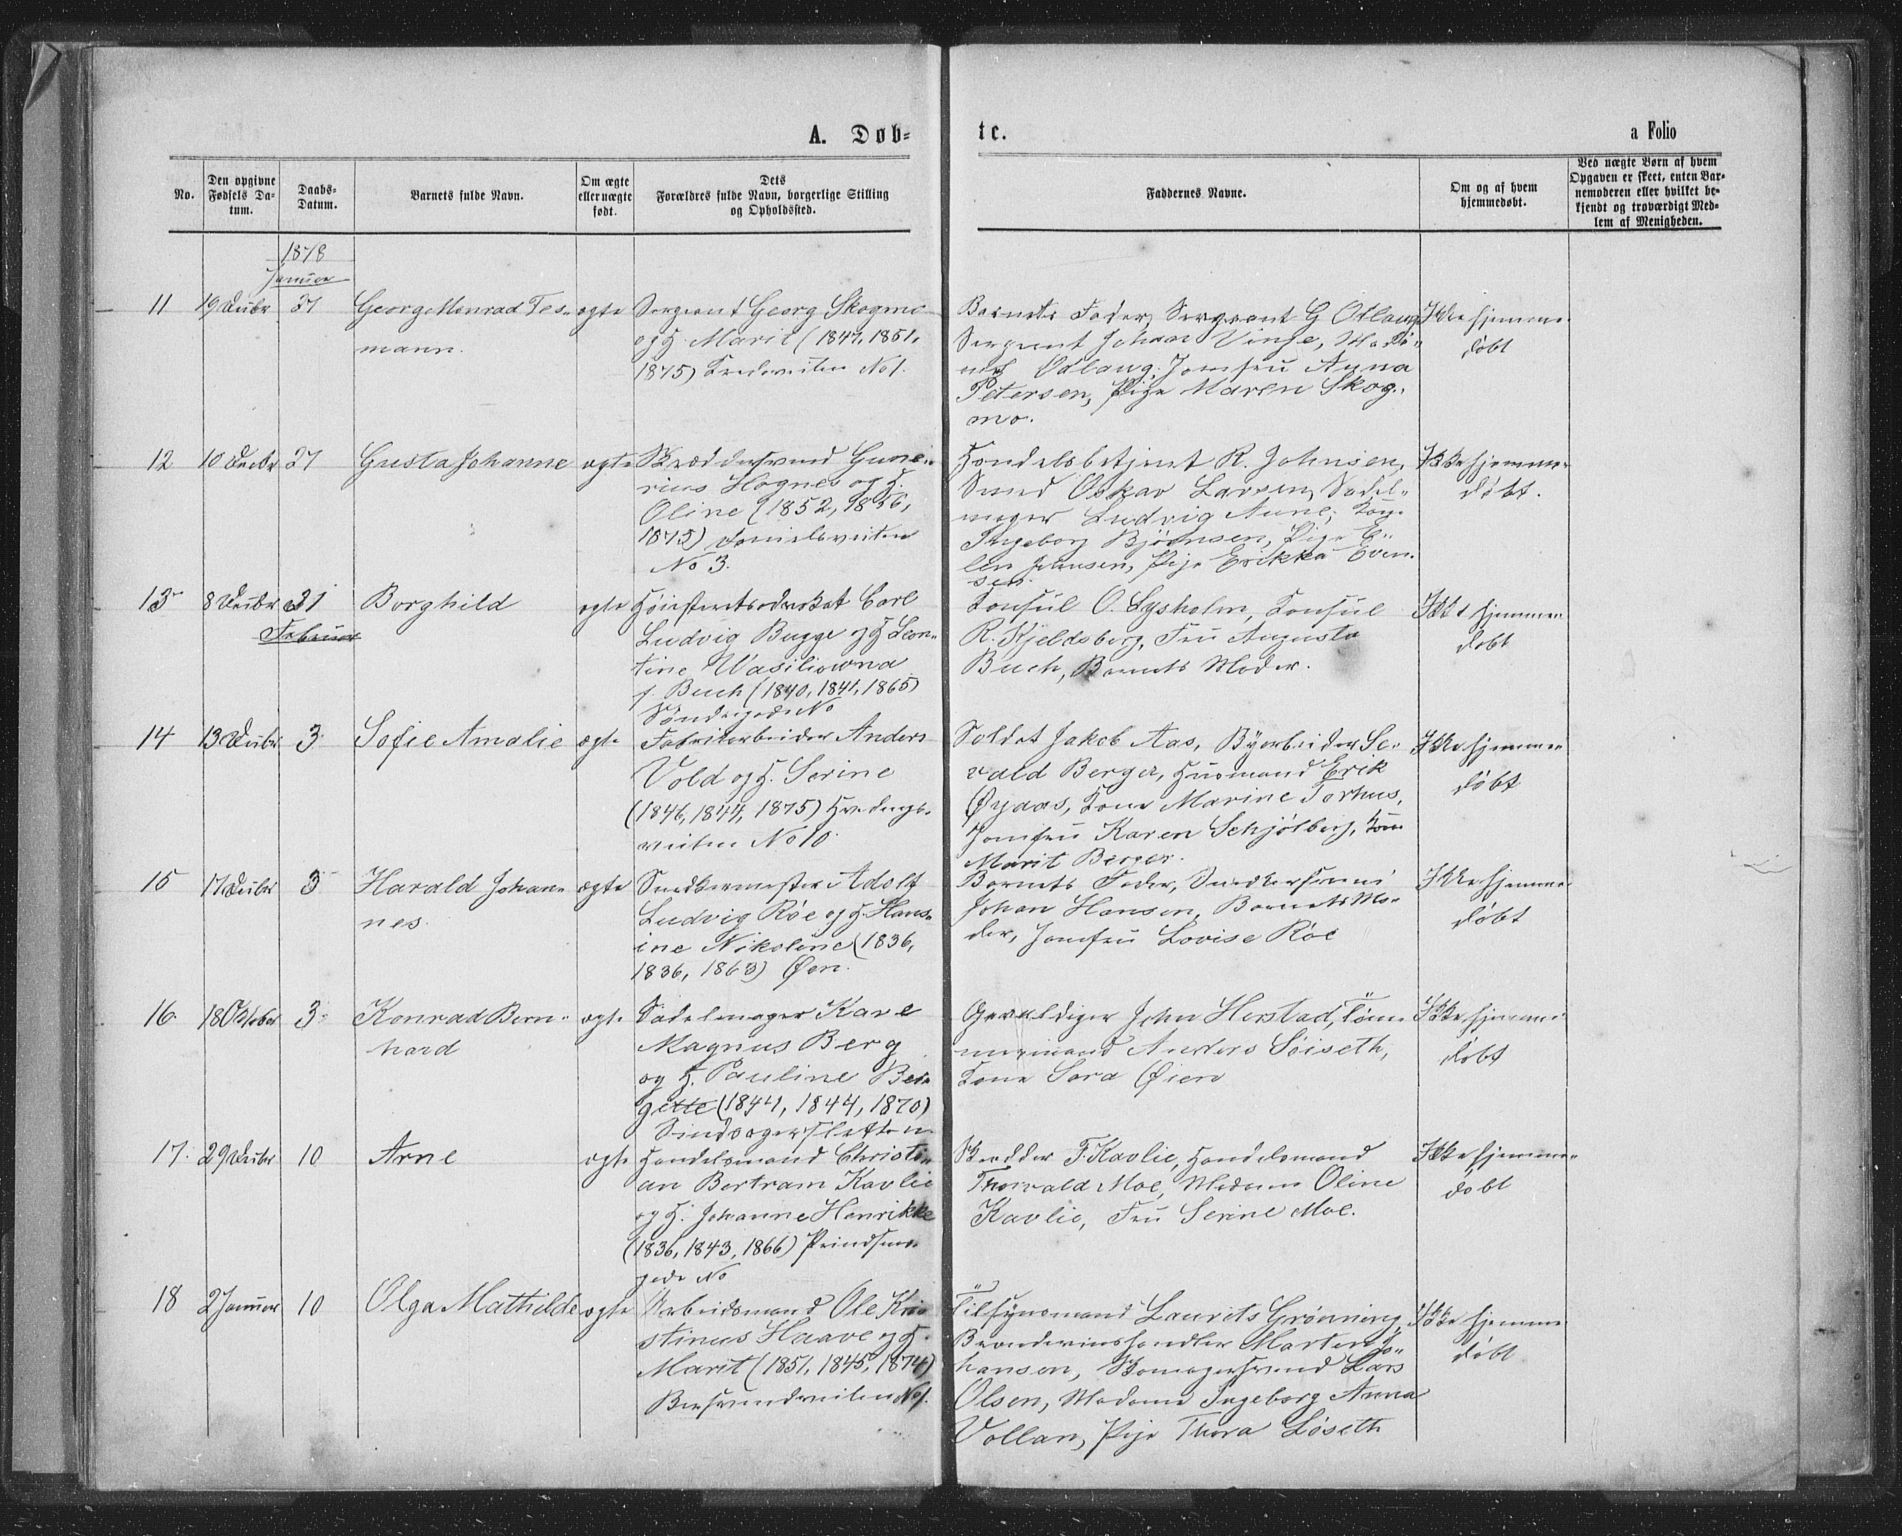 A. Døb-
te.
a Folio
No.
Den opgivne Fødsels Da-
tum.
Daabs-
Datum.
Barnets fulde Navn.
Om ægte
eller uægte
født.
Dets
Forældres fulde Navn, borgerlige Stilling
og Opholdssted.
Faddernes Navne.
Om og af hvem
hjemmedøbt.
Ved uægte Børn af hvem
Opgaven er skeet, enten Bar-
nemoderen eller hvilket be-
kjendt og troværdigt Med-
lem af Menigheden.
1878
Januar
11 19 Decbr 27 Georg Monrad Tes-
mann.
ægte
Sergeant Georg Skogmo
og H. Marit (1847, 1851,
1875) No 1.
Barnets Fader, Sergeant G Otlaug
Sergeant Johan Vinge, Mada-
me Odlaug, Jomfru Anna
Petersen, Pige Maren Skog-
mo.
Ikke hjemme-
døbt
12 10 Decbr 27 Gusta Johanne ægte
Skræddersvend Gune-
rius Hognes og H.
Oline (1852, 1856,
1875) Danielsveiten
No 3.
Handelsbetjent R. Johnsen,
Smed Oskar Larsen, Sadel-
mager Ludvig Aune, Kone
Ingeborg Bjørnsen, Pige E-
len Johnsen, Pige Erikka Even-
sen.
Ikke hjemme-
døbt.
13 8 Decbr 31 Borghild ægte
Februar
Høiesteretsadvokat Carl
Ludvig Bugge og H Leon-
tine Wasiliowna
f. Buch (1840, 1841, 1865)
Søndregade No
Konsul O. Lysholm, Konsul
R. Kjeldsberg, Fru Augusta
Buch, Barnets Moder.
Ikke hjemme-
døbt
14 13 Decbr 3 Sofie Amalie ægte
Fabrikarbeider Anders
Vold og H. Serine
(1846, 1844, 1875) Hvedings-
veiten No 10.
Soldat Jakob Aas, Byarbeider Se-
vald Berger, Husmand Erik
Øyaas, Kone Marine Torhus,
Jomfru Karen Schjølberg, Kone
Marit Berger.
Ikke hjemme-
døbt
15 17 Decbr 3 Harald Johan-
nes.
ægte
Snedkermester Adolf
Ludvig Röe og H. Hans-
ine Nikoline (1836,
1836, 1863) Øen.
Barnets Fader, Snedkersvend
Johan Hansen, Barnets Mo-
der, Jomfru Lovise Röe
Ikke hjemme-
døbt
16. 18 Oktober 3. Konrad Bern-
hard
ægte
Sadelmager Kare
Magnus Berg
og H. Pauline Ber-
gette (1844, 1844, 1870)
Barnets
Gevaldiger John Herstad, Töm-
mermand Anders Söiseth,
Kone Sara Øien
Ikke hjemme-
døbt
17. 29 Decbr 10 Arne ægte
Handelsmand Christi-
an Bertram Kavlie
og H. Johanne Henrikke
(1836, 1843, 1866) Prindsens-
gade No
Skrædder F. Kavlie, Handelsmand
Thorvald Moe, Madam Oline
Kavlie, Fru Serine Moe.
Ikke hjemme-
døbt
18 2 Januar 10 Olga Mathilde ægte
Arbeidsmand Ole Kri-
stinus Haave og H.
Marit (1851, 1845, 1874)
No 1.
Tilsynsmand Laurits Grønning,
Brændevinshandler Morten Jo-
hansen, Skomagersvend Lars
Olsen, Madame Ingeborg Anna
Vollan, Pige Thora Løseth
Ikke hjemme-
døbt